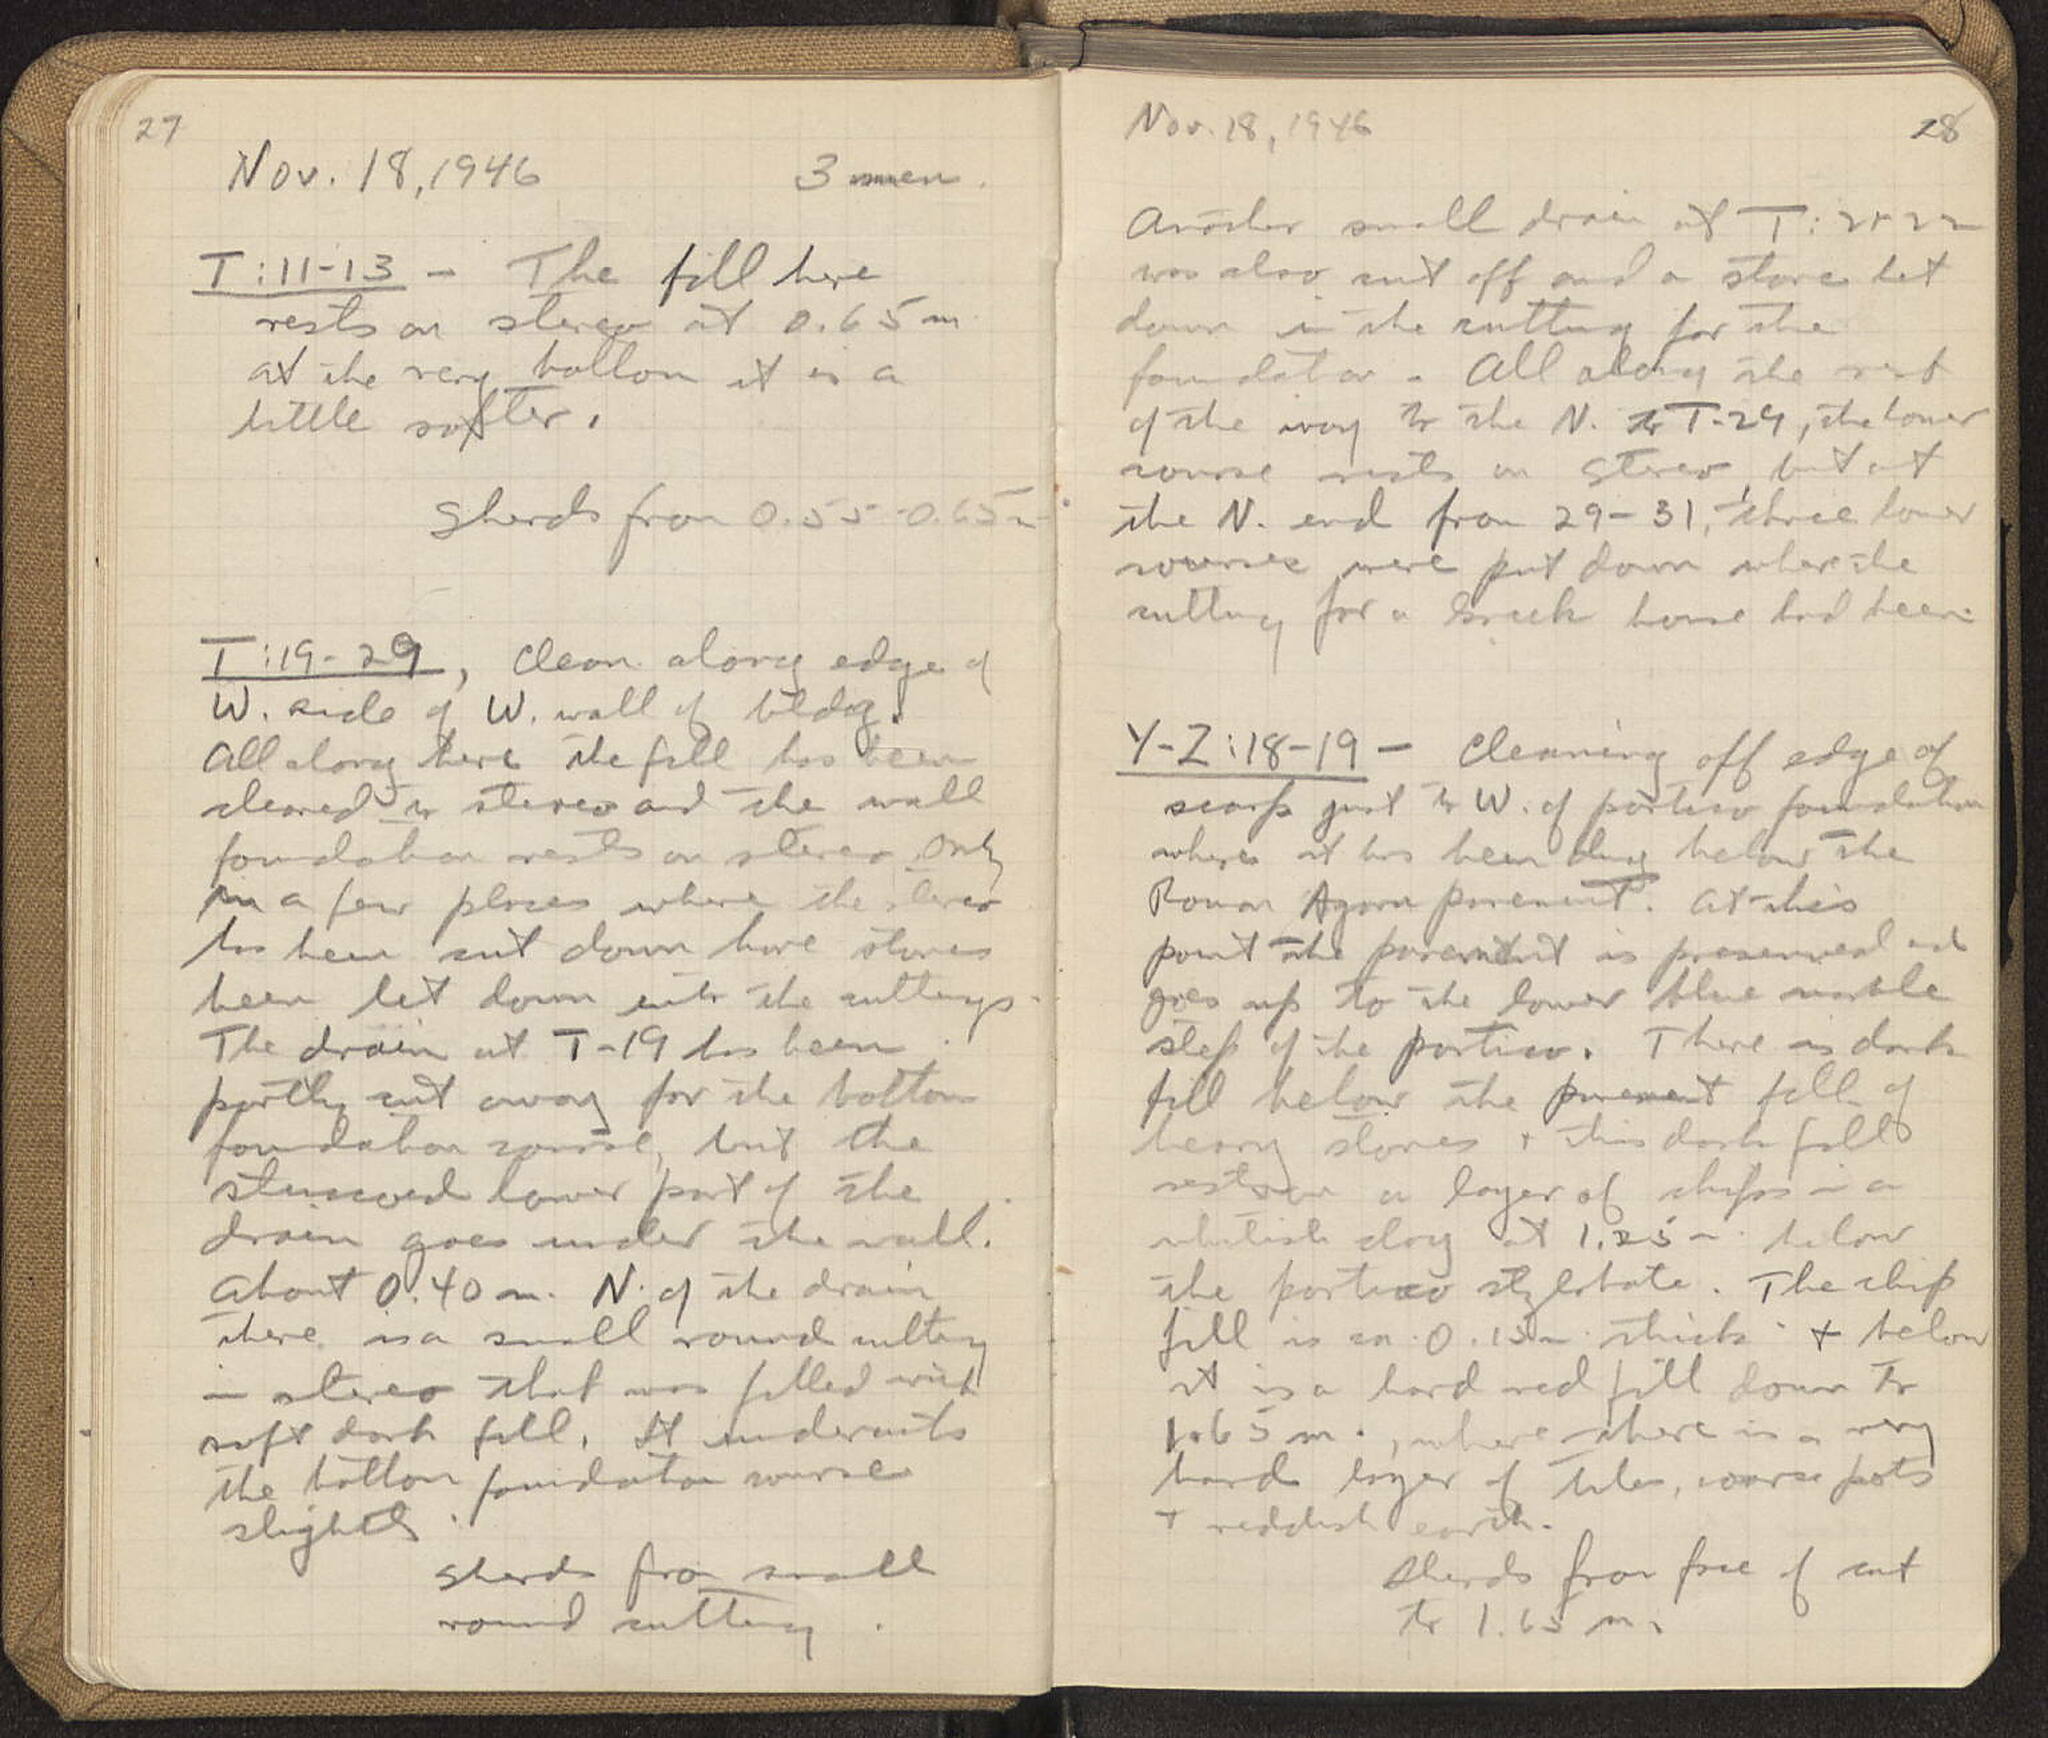 27
Nov. 18, 1946 3 men.
T:11-13 - The fill here
rests on stereo at 0.65 m
at the very bottom it is a
little softer.
Sherds from 0.55-0.65 m
T:19-29, Clean along edge of
W. side of W. wall of bldg.
All along here the fill has been
cleared to stereo and the wall
foundation rests on stereo. Only
in a few places where the stereo
has been cut down have stones
been let down into the cuttings.
The drain at T-19 has been
partly cut away for the bottom
foundation course, but the
stuccoed lower part of the
drain goes under the wall.
About 0.40 m. N. of the drain
there is a small round cutting
in stereo that was filled with
soft dark fill. It undercuts
the bottom foundation course
slightly.
Sherds from small
round cutting.
Nov. 18, 1946 28
Another small drain at T:
was also cut off and a stone let
down in the cutting for the
foundation. All along the rest
of the way to the N. to T-29, the lower
course rests on stereo, but at
the N. end from 29-31, three lower
courses were put down where the
cutting for a Greek house had been
Y-Z:18-19 - Cleaning off edge of
scarp just to W. of portico foundation
where it has been dug below the
Roman Agora pavement. At this
point the pavement is preserved and
goes up to the lower blue marble
step of the portico. There is dark
fill below the pavement fill of
heavy stones + this dark fill
rests on a layer of chips in a
whitish clay at 1.25 m. below
the portico stylobate. The chip
fill is ca. 0.15 m. thick + below
it is a hard red fill down to
1.65 m., where there is a very
hard layer of tiles, coarse pots
+ reddish earth.
Sherds from face of cut
to 1.65 m.